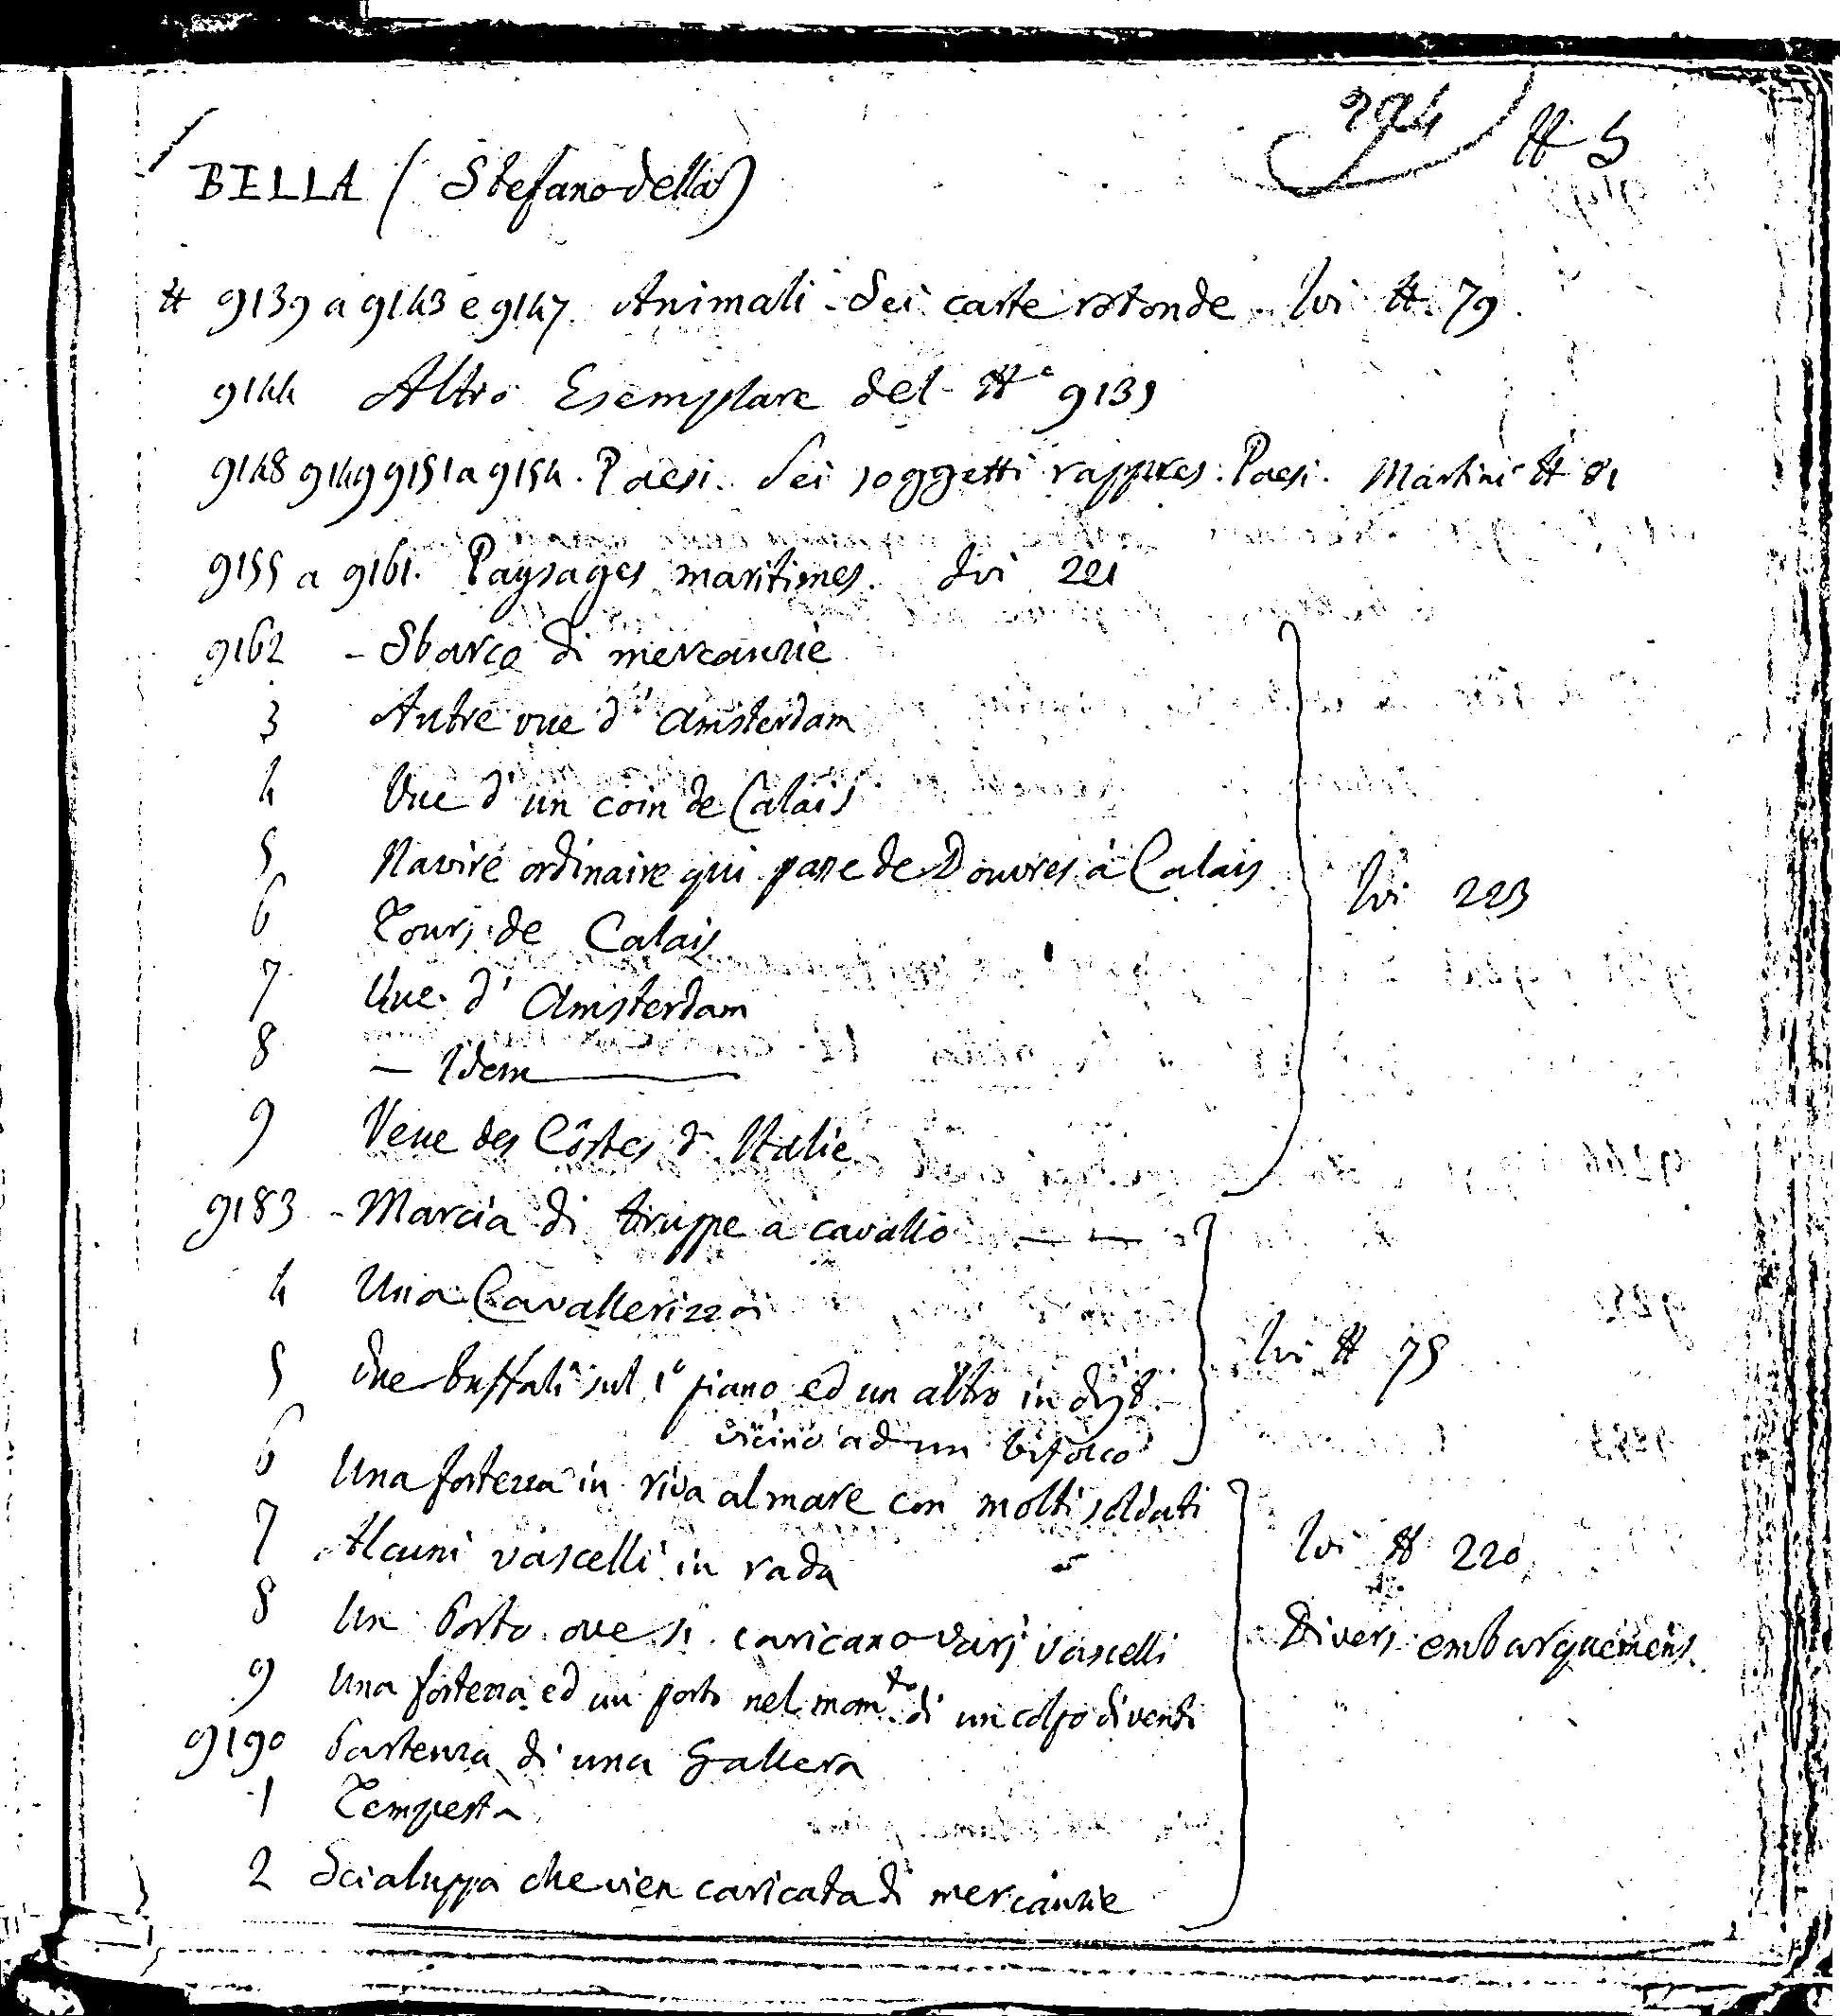 294 # 5
BELLA (Stefano della)
# 9139 a 9143 e 9147. Animali. Sei carte rotonde. Ivi #. 79.
9144 Altro Esemplare del #° 9139
9148 9149 9151 a 9154. Paesi. Sei soggetti rappres. Paesi. Martini # 81
9155 a 9161. Paysages maritimes. Ivi 221
9162 - Sbarco di mercanzie
3 Autre vue d'Amsterdam
4 Vue d'un coin de Calais
5 Navire ordinaire qui passe de Douvres à Calais
6 Tours de Calais
Ivi 223
7 Vue d'Amsterdam
8 — Idem
9 Veue des Côstes d'Italie
9183 - Marcia di truppe a cavallo
4 Una Cavallerizza
5 Due buffali sul 1° piano ed un altro in dist.
vicino ad un bifolco
Ivi # 75
6 Una fortezza in riva al mare con molti soldati
7 Alcuni vascelli in rada
Ivi # 220
8 Un Porto ove si caricano varj vascelli
Divers embarquemens.
9 Una fortezza ed un porto nel mom.to di un colpo di vento
9190 Partenza di una Gallera
1 Tempesta
2 Scialuppa che vien caricata di mercanzie